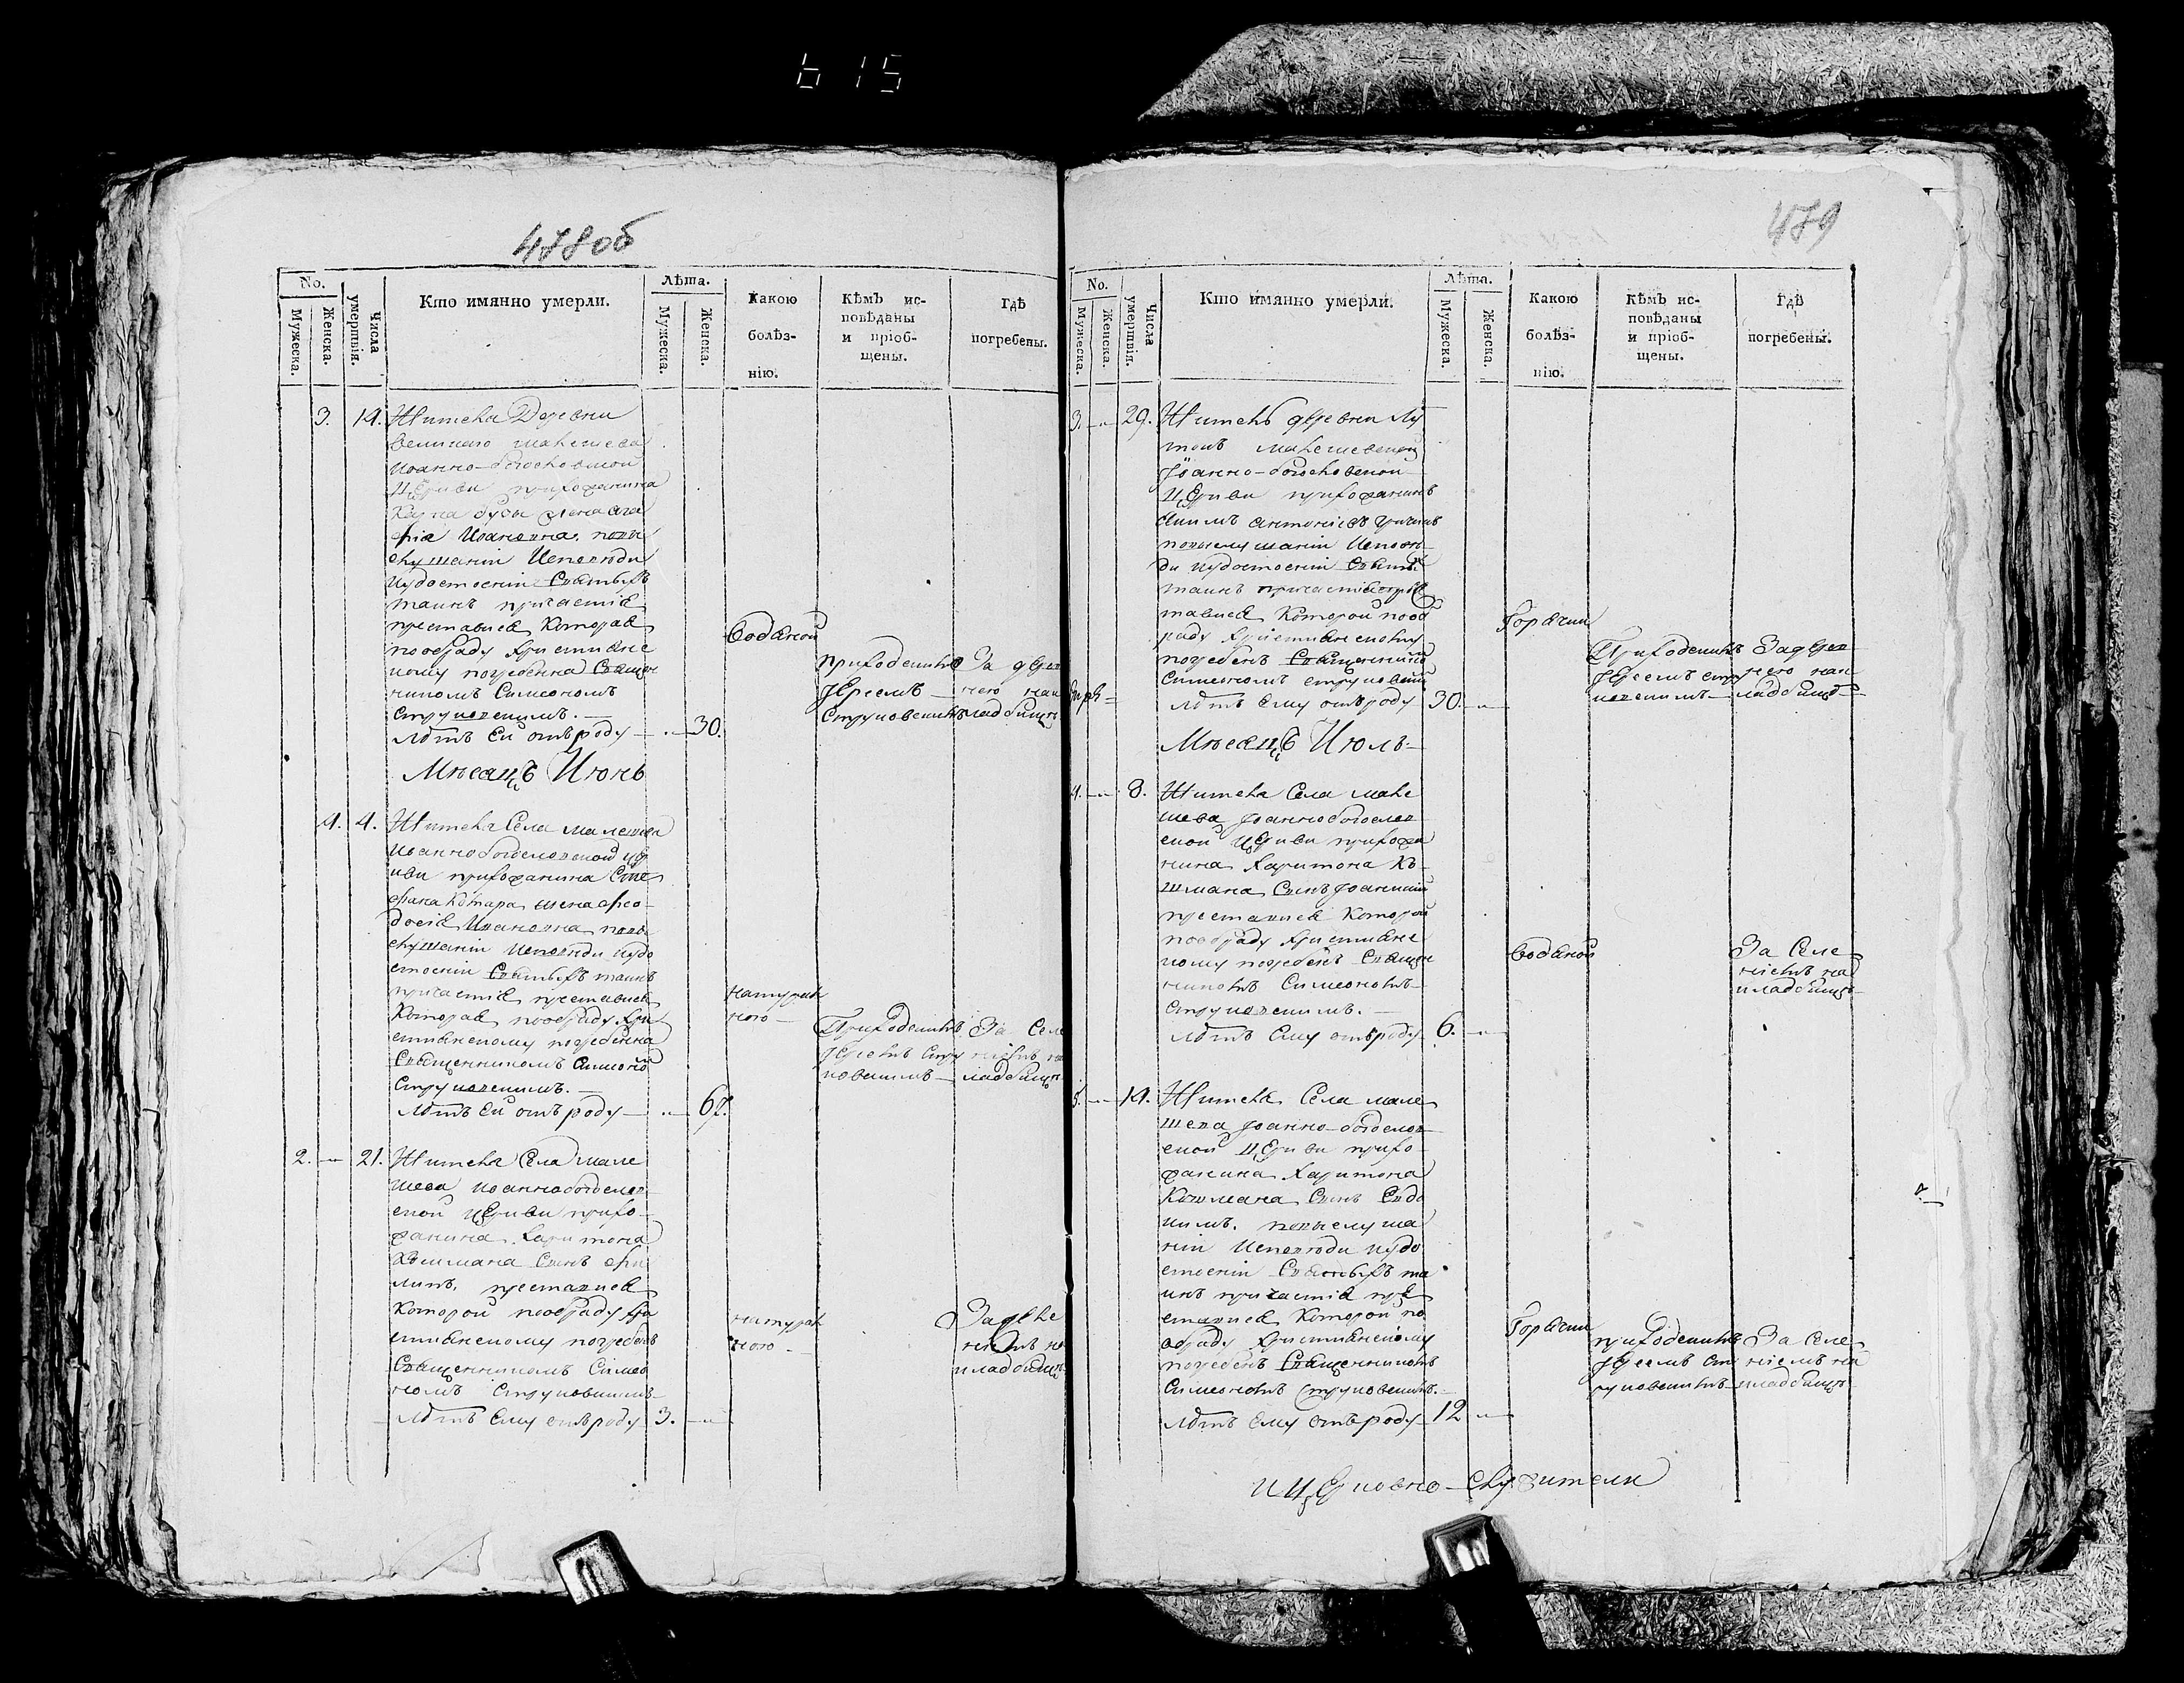 615
478об
No.
Мужеска.
Женска.
Числа умертвія.
Кто имянно умерли.
Лѣта.
Мужеска.
Женска.
Какою
болѣз-
нію.
Кѣмъ ис-
повѣданы
и пріоб-
щены.
Гдѣ
погребены.
3. 14. Жителя Деревни
великаго малешева
Иоанно-богословской
Церкви прихожанина
жена Ага
фіа Ивановна, повы
слушаніи Исповѣди
иудостоеніи Святыхъ
таинъ причастія
преставися которая
пообряду християнс
кому погребенна Священ
никомъ Симеономъ
Струковскимъ.—
Лѣтъ ей отъ роду — 30.
водяной
приходскимъ
Іереемъ —
Струковскимъ
За дерев
нею на к
ладбищѣ
Мѣсяцъ Июнь
4. 4. Жителя Села малешева
Иоаннобогословской цер
кви прихожанина Сте
фана Котара жена Фео-
досія Ивановна повы
слушаніи Исповѣди иудо
стоеніи Святыхъ таинъ
причастія преставися
которая пообряду хри
стиянскому погребенна
Священникомъ Симеоно
Струковскимъ.—
Лѣтъ ей отъ роду — 67.
натурал
ною —
Приходскимъ
Іереемъ Стру
ковскимъ —
За Селе
ніемъ на
кладбищѣ
2. — 21. Жителя Села мале
шева иоаннобогослов
ской Церкви прихо-
жанина Харитона
Кошмана Сынъ Фи
липъ, преставися
которой пообряду хри
стиянскому погребенъ
Священникомъ Симео
номъ Струковскимъ
Лѣтъ ему отъ роду 3. —
натурал
ною —
За селе
ніемъ на
кладбищѣ
479
No.
Мужеска.
Женска.
Числа умертвія.
Кто имянно умерли.
Лѣта.
Мужеска.
Женска.
Какою
болѣз-
нію.
Кѣмъ ис-
повѣданы
и пріоб-
щены.
Гдѣ
погребены.
3. — 29. Житель деревни
малешевской
Іоанно-богословской
Церкви прихожанинъ
повыслушаніи Исповѣ
ди иудостоеніи Святы
таинъ причастія пре
тавися которой пооб
ряду християнскому
погребенъ Священнико
Симеономъ Струковски
Лѣтъ ему отъ роду 30. —
Горячки
Приходскимъ
Іереемъ стру
ковскимъ —
За дерев
нею на к
ладбищѣ
Мѣсяцъ Июль —
4. — 8. Жителя Села мале
шева Іоаннобогослов
ской Церкви прихожа
нина Харитона Ко
шмана Сынъ Іоанникій
преставися которой
пообряду християнс
кому погребенъ Священ
никомъ Симеономъ
Струковскимъ.—
Лѣтъ ему отъ роду 6. —
водяной
За Селе
ніемъ на
кладбищѣ
5. — 14. Жителя Села мале
шева Іоанно-богослов
ской Церкви прихо
жанина Харитона
Кошмана Сынъ Евдо
кимъ. повыслуша
ніи Исповѣди иудо
стоеніи Святыхъ та
инъ причастія пре
ставися которой по
обряду християнскому
погребенъ Священникомъ
Симеономъ Струковскимъ.—
Лѣтъ ему отъ роду 12 —
Горячки
приходскимъ
Іереемъ Ст
руковскимъ
За Селе
ніемъ на
кладбищѣ
и Церковно-служители